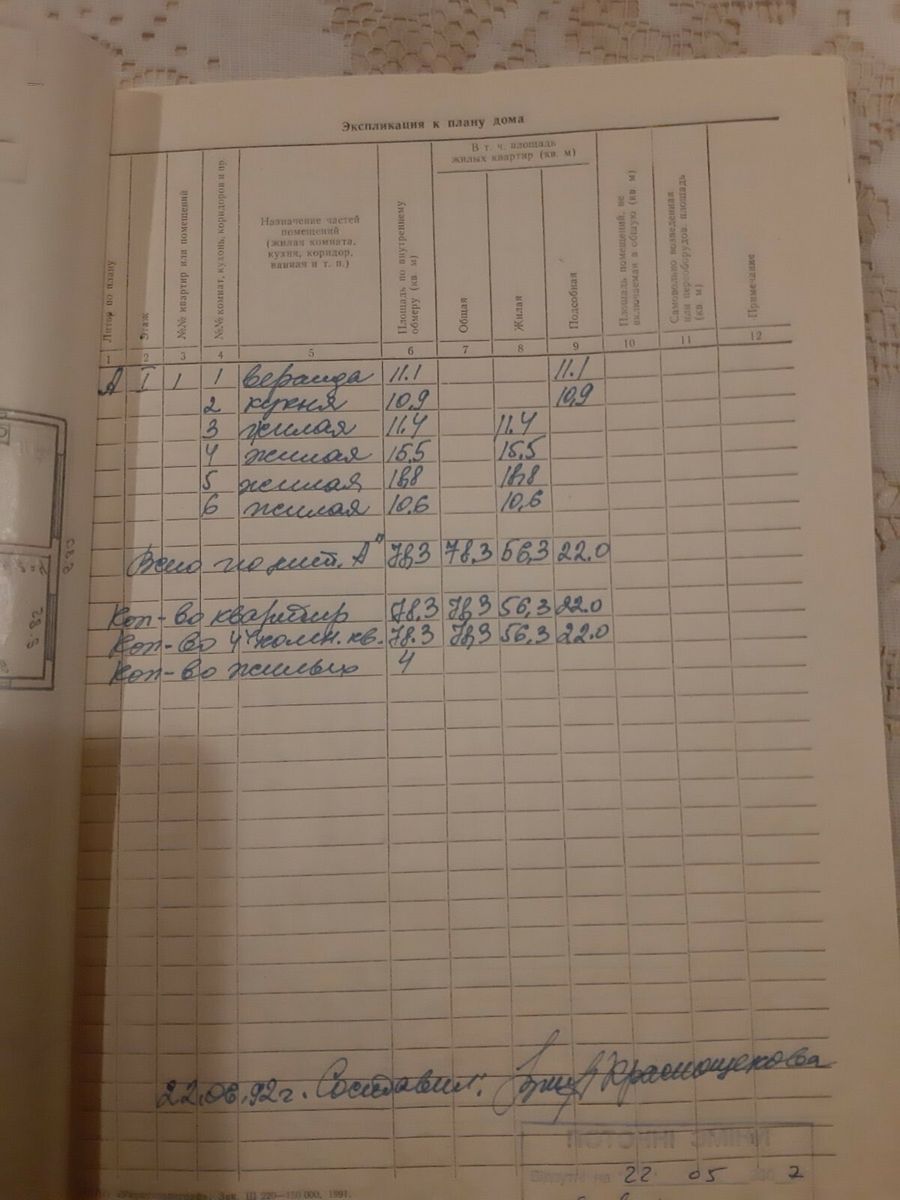 Экспликация к плану дома
Литер по плану
Этаж
№№ квартир или помещений
№№ комнат, кухонь, коридоров и пр.
Назначение частей
помещений
(жилая комната,
кухня, коридор,
ванная и т. п.)
Площадь по внутреннему
обмеру (кв. м)
В т. ч. площадь
жилых квартир (кв. м)
Общая
Жилая
Подсобная
Площадь помещений, не
включаемая в общую (кв м)
Самовольно возведенная
или переоборудов. площадь
(кв м)
Примечание
1 2 3 4 5 6 7 8 9 10 11 12
А I 1 1 веранда 11.1 11.1
2 кухня 10,9 10,9
3 жилая 11.4 11.4
4 жилая 15,5 15,5
5 жилая 18,8 18,8
6 жилая 10,6 10,6
Всего по лит. А" 78,3 78,3 56,3 22.0
Кол-во квартир 78.3 78,3 56,3 22.0
Кол-во 4 комн. кв. 78.3 78,3 56,3 22.0
Кол-во жилых 4
22.06.92г. Составил: Краснощекова
22 05
1991.